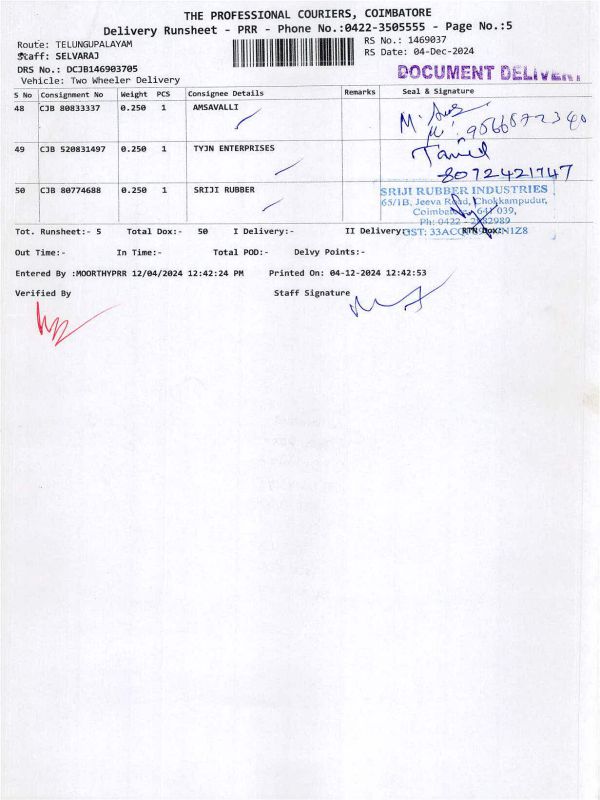 THE PROFESSIONAL COURIERS, COIMBATORE
Delivery Runsheet - PRR - Phone No.:0422-3505555 - Page No.:5
Route: TELUNGUPALAYAM
RS No.: 1469037
Staff: SELVARAJ
RS Date: 04-Dec-2024
DRS No.: DCJB146903705
DOCUMENT
Vehicle: Two Wheeler Delivery
S No Consignment No Weight PCS Consignee Details Remarks Seal & Signature
48 CJB 80833337 0.250 1 AMSAVALLI
49 CJB 520831497 0.250 1 TYJN ENTERPRISES
8072421747
50 CJB 80774688 0.250 1 SRIJI RUBBER
SRIJI RUBBER INDUSTRIES
65/1B, Jeeva Road, Chokkampudur,
641 039,
Ph: 0422 -
Tot. Runsheet:- 5 Total Dox:- 50 I Delivery:- II Delivery:- RTN Dox:-
Out Time:- In Time:- Total POD:- Delvy Points:-
Entered By :MOORTHYPRR 12/04/2024 12:42:24 PM Printed On: 04-12-2024 12:42:53
Verified By Staff Signature